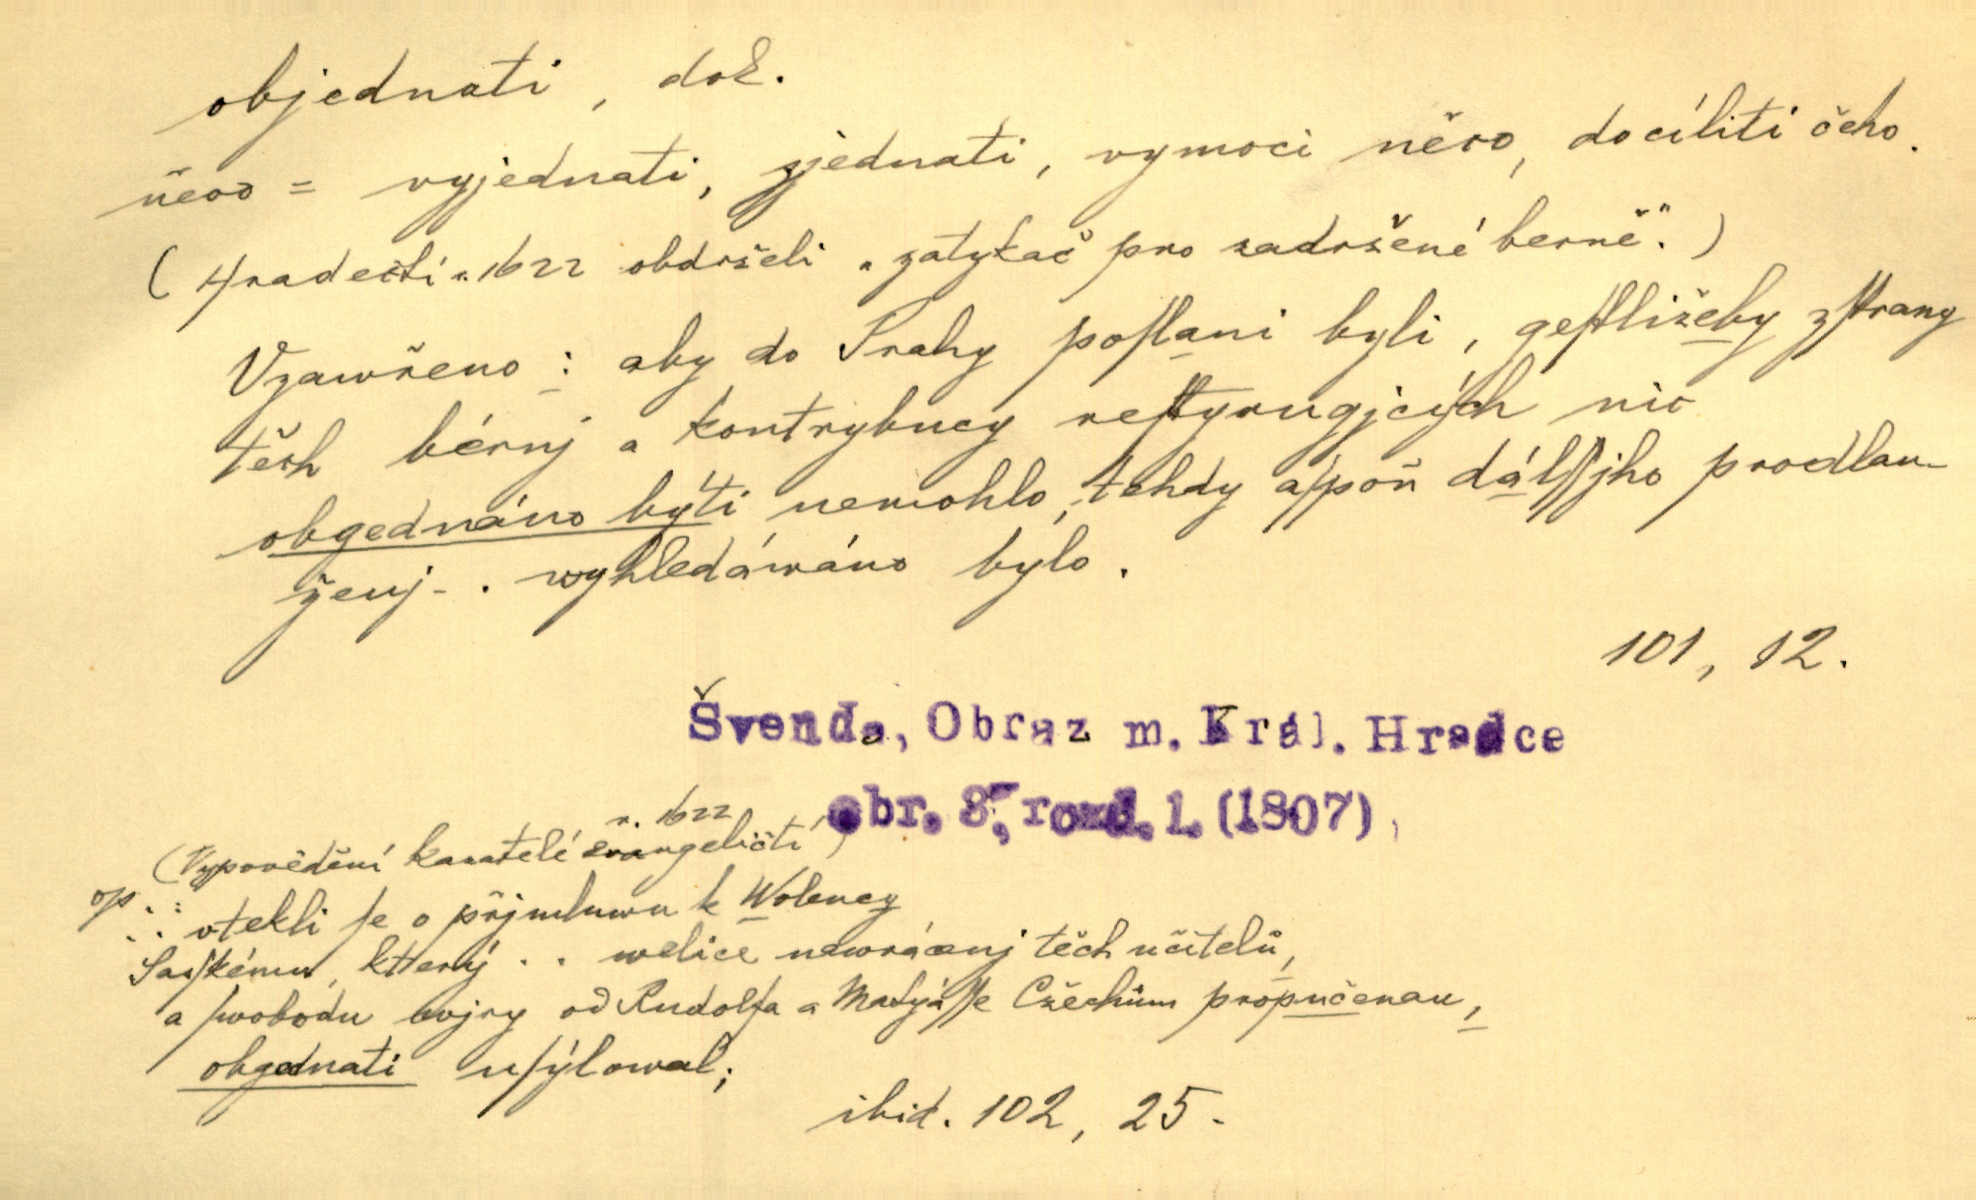 objednati, dok.
něco = vyjednati, zjednati, vymoci něco, docíliti čeho.
(Hradečtí r. 1622 obdrželi „zatykač pro zadržené berně“.)
Vzawřeno: aby do Prahy poſlani byli, geſtližeby zſtrany
těch bérnj a kontrybucy reſtyrugjcých nic
obgednáno býti nemohlo, tehdy aſpoň dálſſjho prodlau-
ženj - . wyhledáwáno bylo.
101, 12.
Švenda, Obraz m. Král. Hradce
obr. 8, rozd. 1. (1807)
r. 1622
(Vypovědění kazatelé evangeličtí)
op. : . . vtekli ſe o přjmluwu k Wolency
Saſkému, kterj . . welice nawrácenj těch učitelů,
a ſwobodu wjry od Rudolfa a Matyáſſe Czěchům propučenau,
obgednati uſýlowal;
ibid. 102, 25.